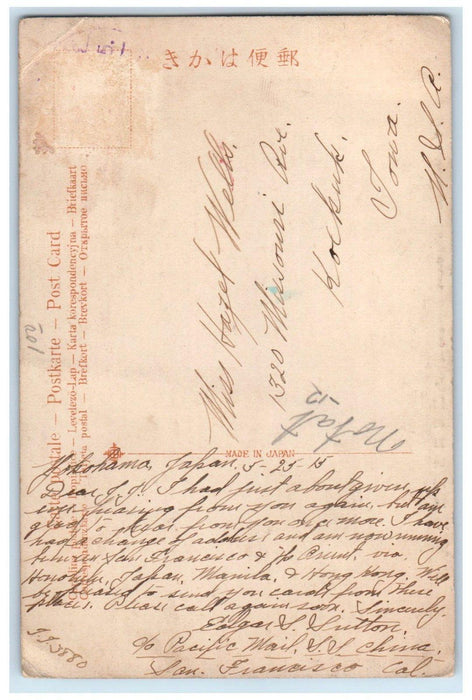 きかは便郵
Carte Postale — Postkarte — Post Card
Levelezo-Lap — Karta korespondencyjna — Briefkaart
postal — Brefkort — Brevkort — Открытое письмо
Miss Hazel Wells.
1320 Missouri Ave.
Keokuk.
Iowa.
U. S. A.
MADE IN JAPAN
Yokohama, Japan, 5-25-15
Dear J.J. I had just about given up
ever hearing from you again, but am
glad to hear from you once more. I have
had a change of address and am now running
between San Francisco & the Orient, via
Honolulu, Japan, Manila, & Hong Kong. Will
be glad to send you cards from these
places. Please call again soon. Sincerely.
Edgar S. Sutton.
c/o Pacific Mail, S.S. China.
San. Francisco Cal.
J.J. 3880